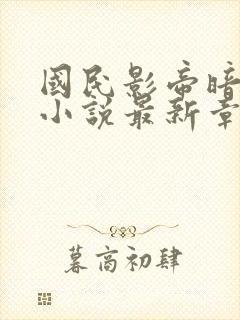 國民影帝暗
小說最新章
暮高初肆